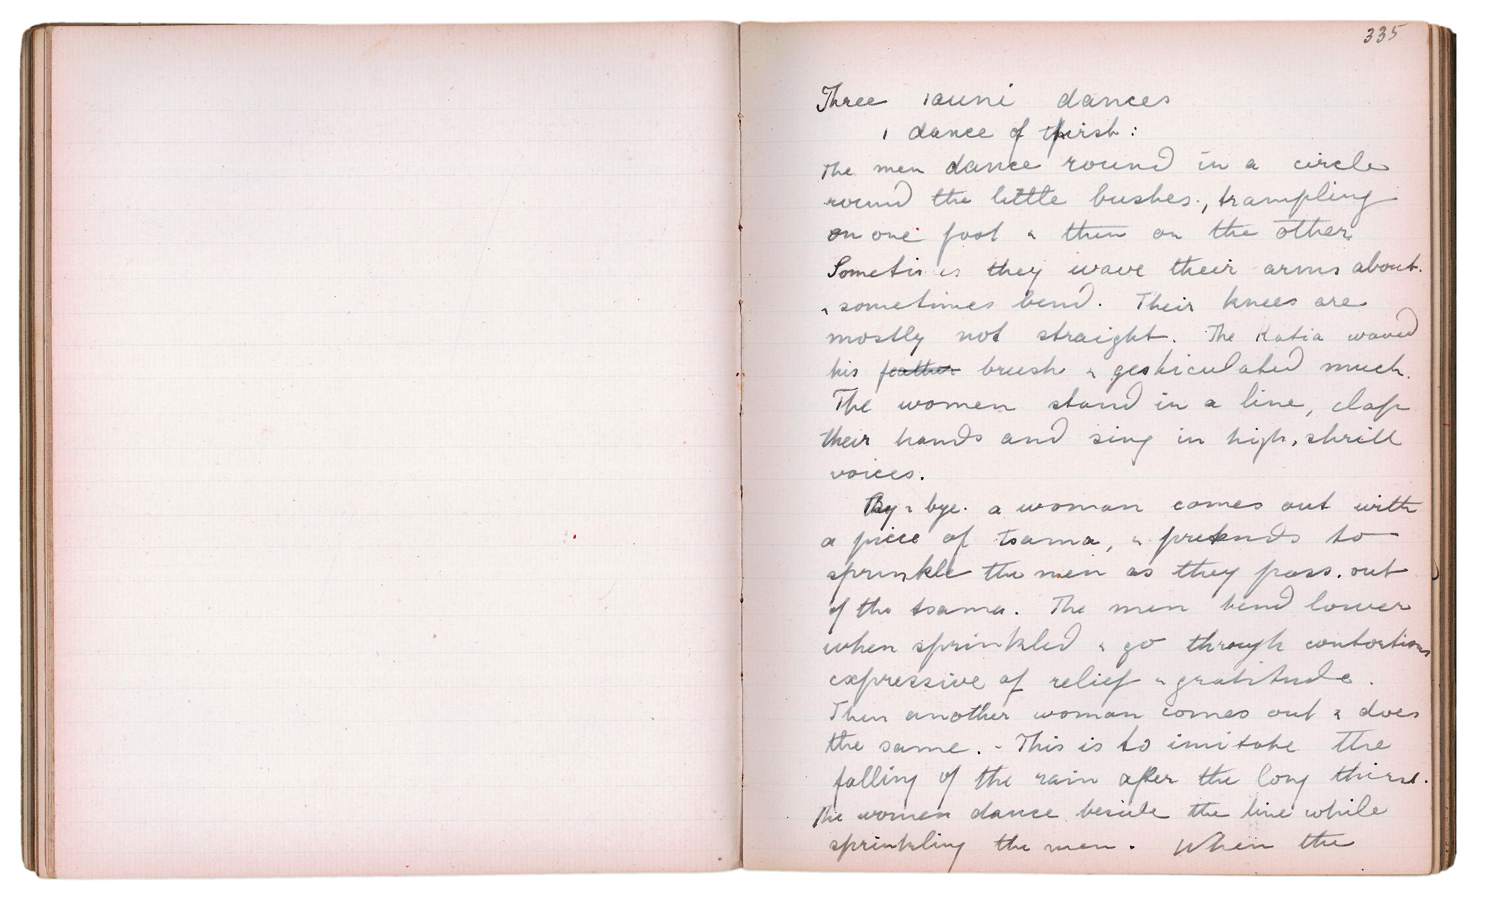 335
Three ıauni dances
1 dance of thirst:
The men dance round in a circle
round the little bushes, trampling
on one foot & then on the other.
Sometimes they wave their arms about
& sometimes bend. Their knees are
mostly not straight. The Katia waved
his feather brush & gesticulated much.
The women stand in a line, clap
their hands and sing in high, shrill
voices.
By & bye. a woman comes out with
a piece of tsama, & pretends to
sprinkle the men as they pass. out
of the tsama. The men bend lower
when sprinkled & go through contortions
expressive of relief & gratitude.
Then another woman comes out & does
the same. - This is to imitate the
falling of the rain after the long thirst.
The women dance beside the line while
sprinkling the men. When the